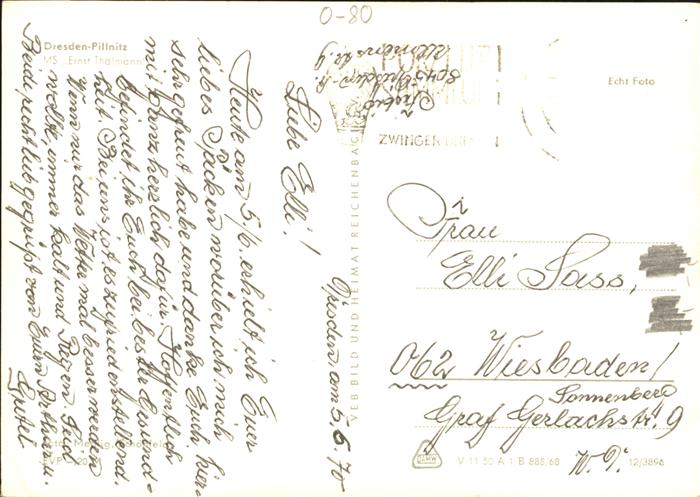 0-80
Dresden-Pillnitz
MS „Ernst Thälmann"
Dresden, am 5.6.70
Liebe Elli!
Heute am 5./6. erhielt ich Euer
liebes Päckchen worüber ich mich
sehr gefreut habe und danke Euch hier=
mit ganz herzlich dafür. Hoffentlich
befindet ihr Euch bei bester Gesund=
heit. Bei uns ist es zufriedenstellend.
Wenn nur das Wetter mal besser werden
wollte, immer kalt und Regen. Seid
Beide recht lieb gegrüßt von Euern Arthur.
VEB BILD UND HEIMAT REICHENBACH
ZWINGER DRESDEN
Echt Foto
Frau
Elli Sass,
062 Wiesbaden/
Sonnenberg
Graf Gerlachstr. 9
W. D.
V 11 50 A 1/B 888/68
12/3896